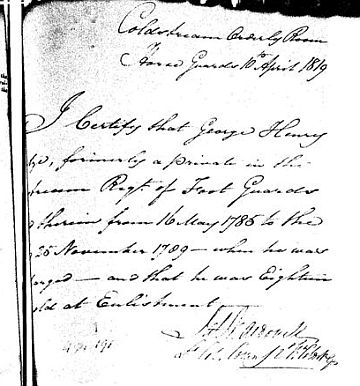 Coldstream Orderly Room
Horse Guards 10th April 1819
I Certify that George Henry
formerly a private in the
Regt of Foot Guards
therein from 16 May 1785 to the
25 November 1789 – when he was
– and that he was Eighteen
old at Enlistment